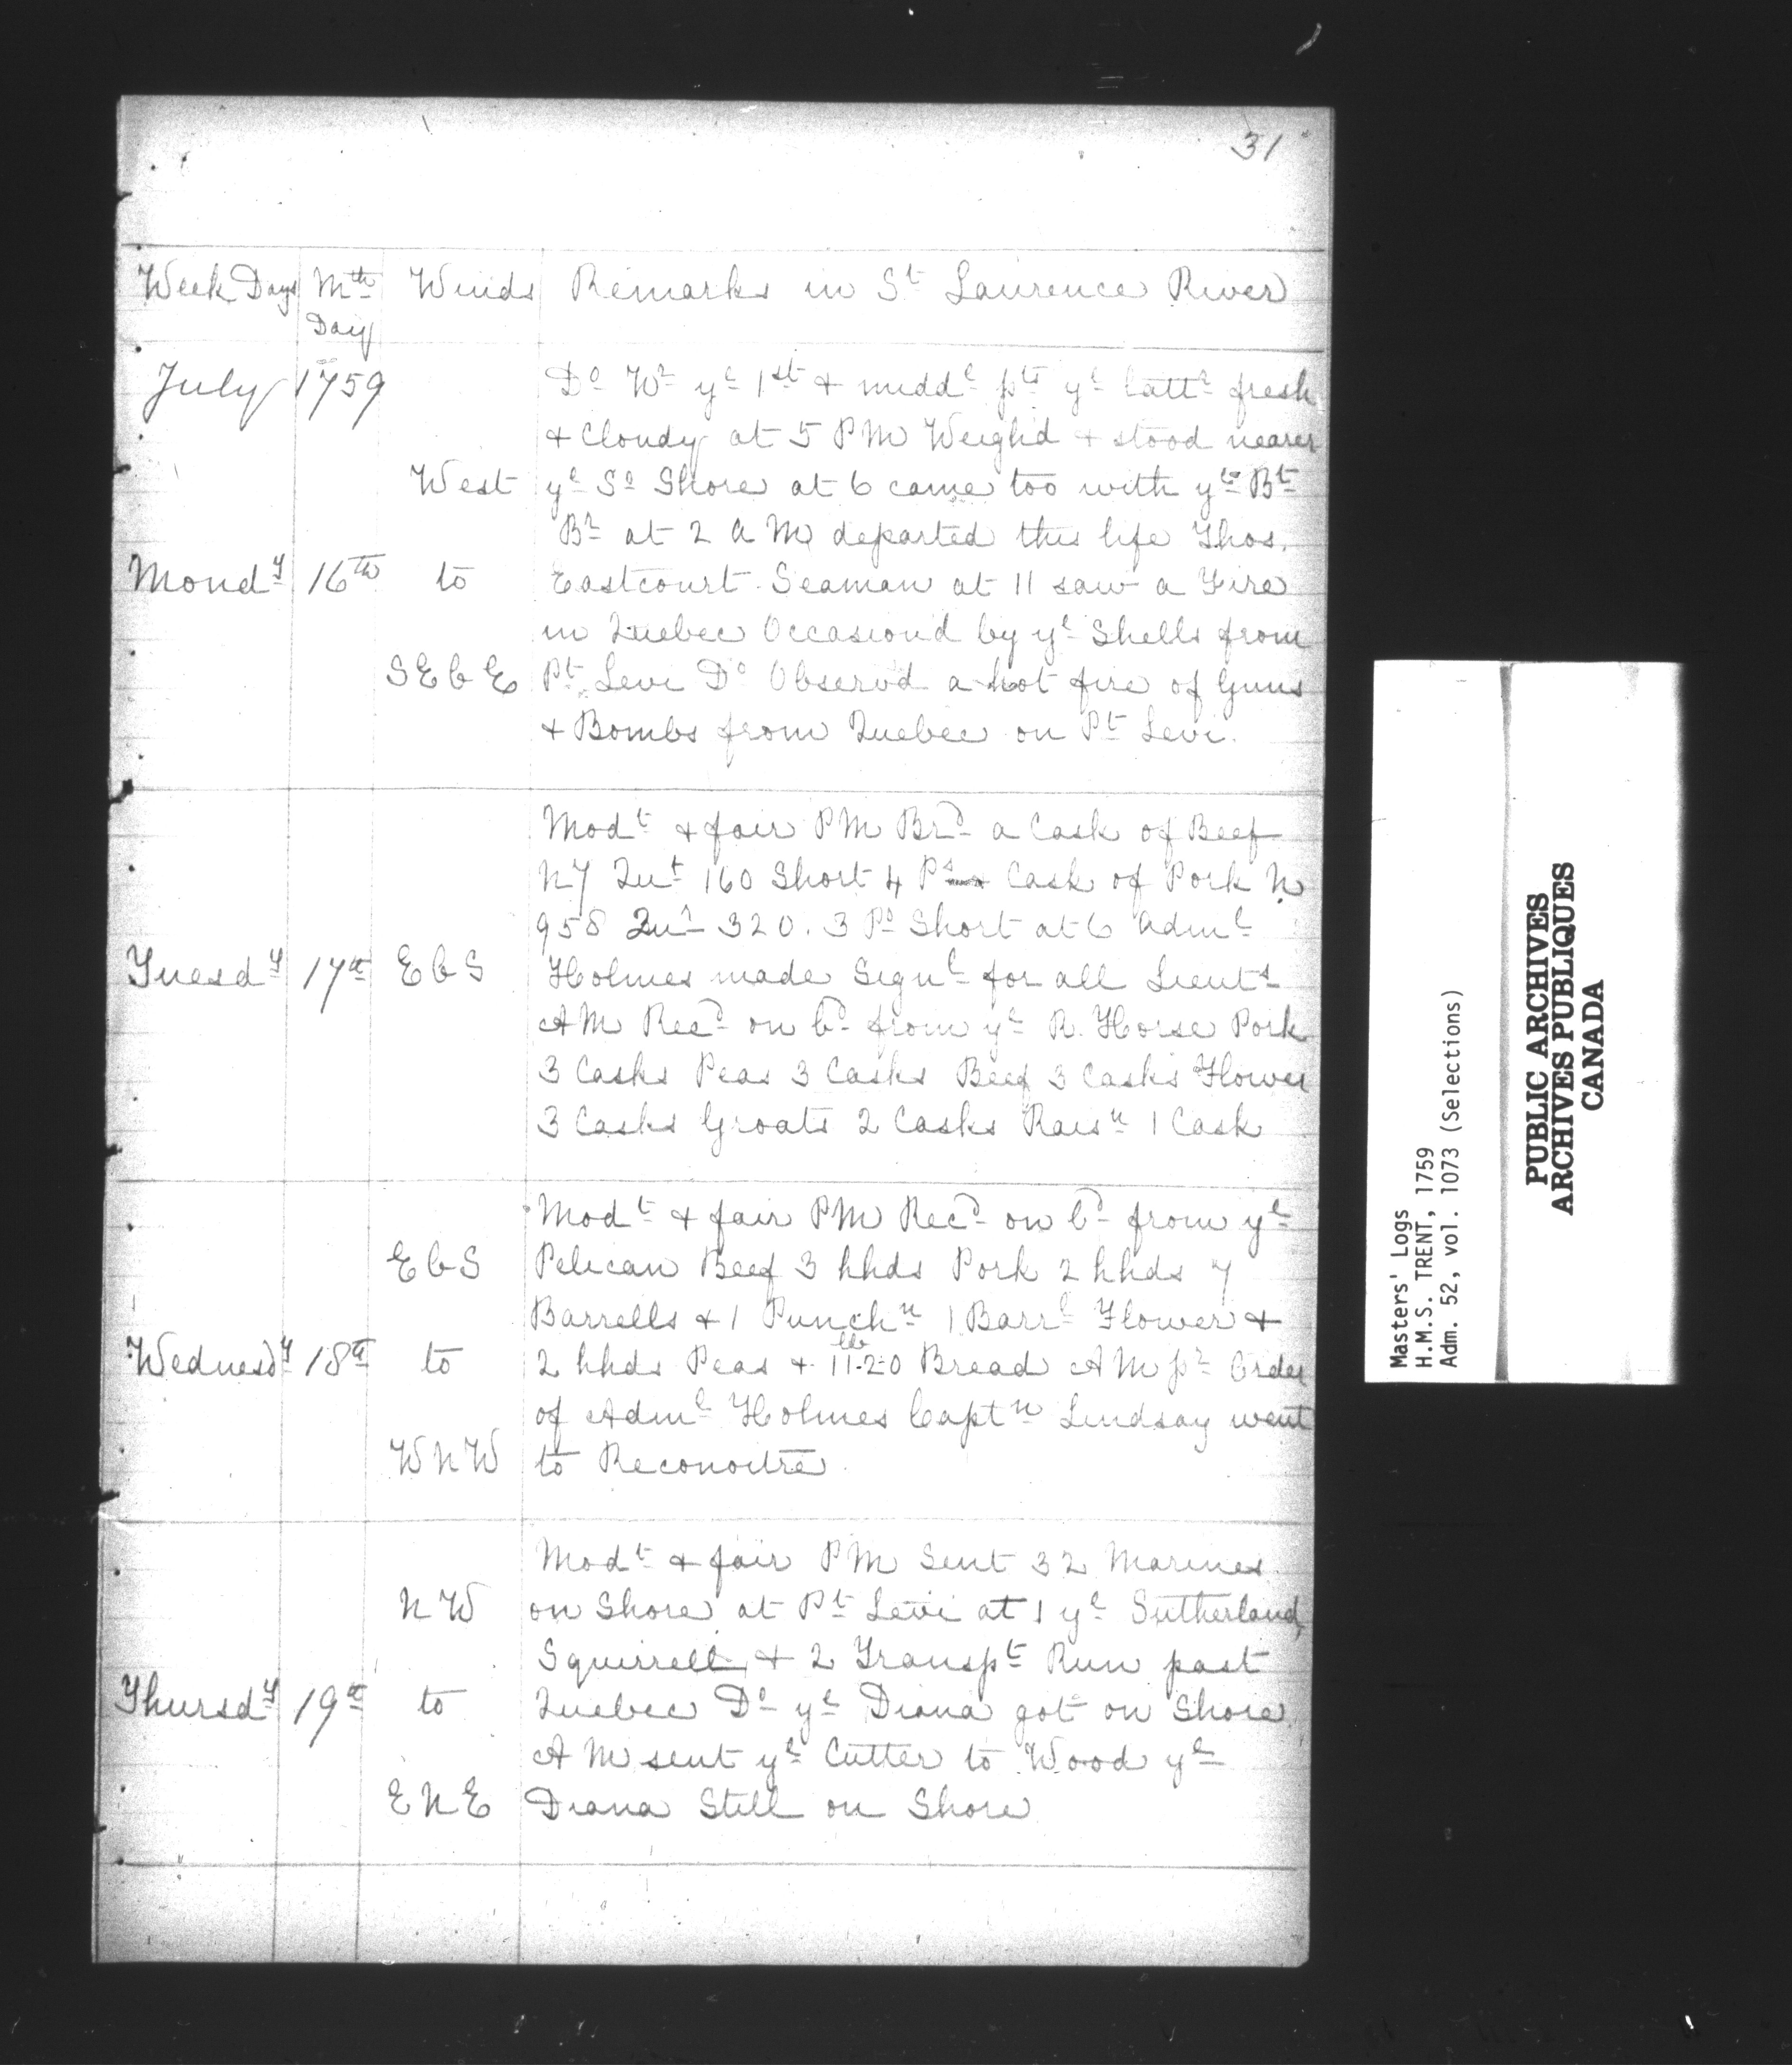 31
Week Days Mth Day Winds Remarks in St Laurence River
July 1759
Do Wr ye 1st & midde pts ye lattr fresh
& Cloudy at 5 PM Weighd & stood nearer
West ye So Shore at 6 came too with ye Bt
Br at 2 AM departed this life Thos.
Mondy 16th to Eastcourt Seaman at 11 saw a Fire
in Quebec Occasiond by ye Shells from
SEbE Pt Levi Do Observd a hot fire of Guns
& Bombs from Quebec on Pt Levi.
Modt & fair PM Brd a Cask of Beef
N7 Qut 160 Short 4 Ps Cask of Pork N
958 Qut 320. 3 Ps Short at 6 Adml
Tuesdy 17th EbS Holmes made Signl for all Lieuts
AM Recd on bd from ye R. Horse Pork
3 Casks Peas 3 Casks Beef 3 Casks Flower
3 Casks Groats 2 Casks Raisn 1 Cask
Modt & fair PM Recd on bd from ye
EbS Pelican Beef 3 hhds Pork 2 hhds 7
Barrells & 1 Punchn 1 Barrl Flower &
Wednesdy 18th to 2 hhds Peas & 11-2-0 lb Bread AM pr Order
of Adml Holmes Captn Lindsay went
WNW to Reconoitre
Modt & fair PM Sent 32 Marines
NW on Shore at Pt Levi at 1 ye Sutherland,
Squirrell & 2 Transpt Run past
Thursdy 19th to Quebec Do ye Diana got on Shore
AM sent ye Cutter to Wood ye
ENE Diana Still on Shore
Masters' Logs
H.M.S. TRENT, 1759
Adm. 52, vol. 1073 (Selections)
PUBLIC ARCHIVES
ARCHIVES PUBLIQUES
CANADA